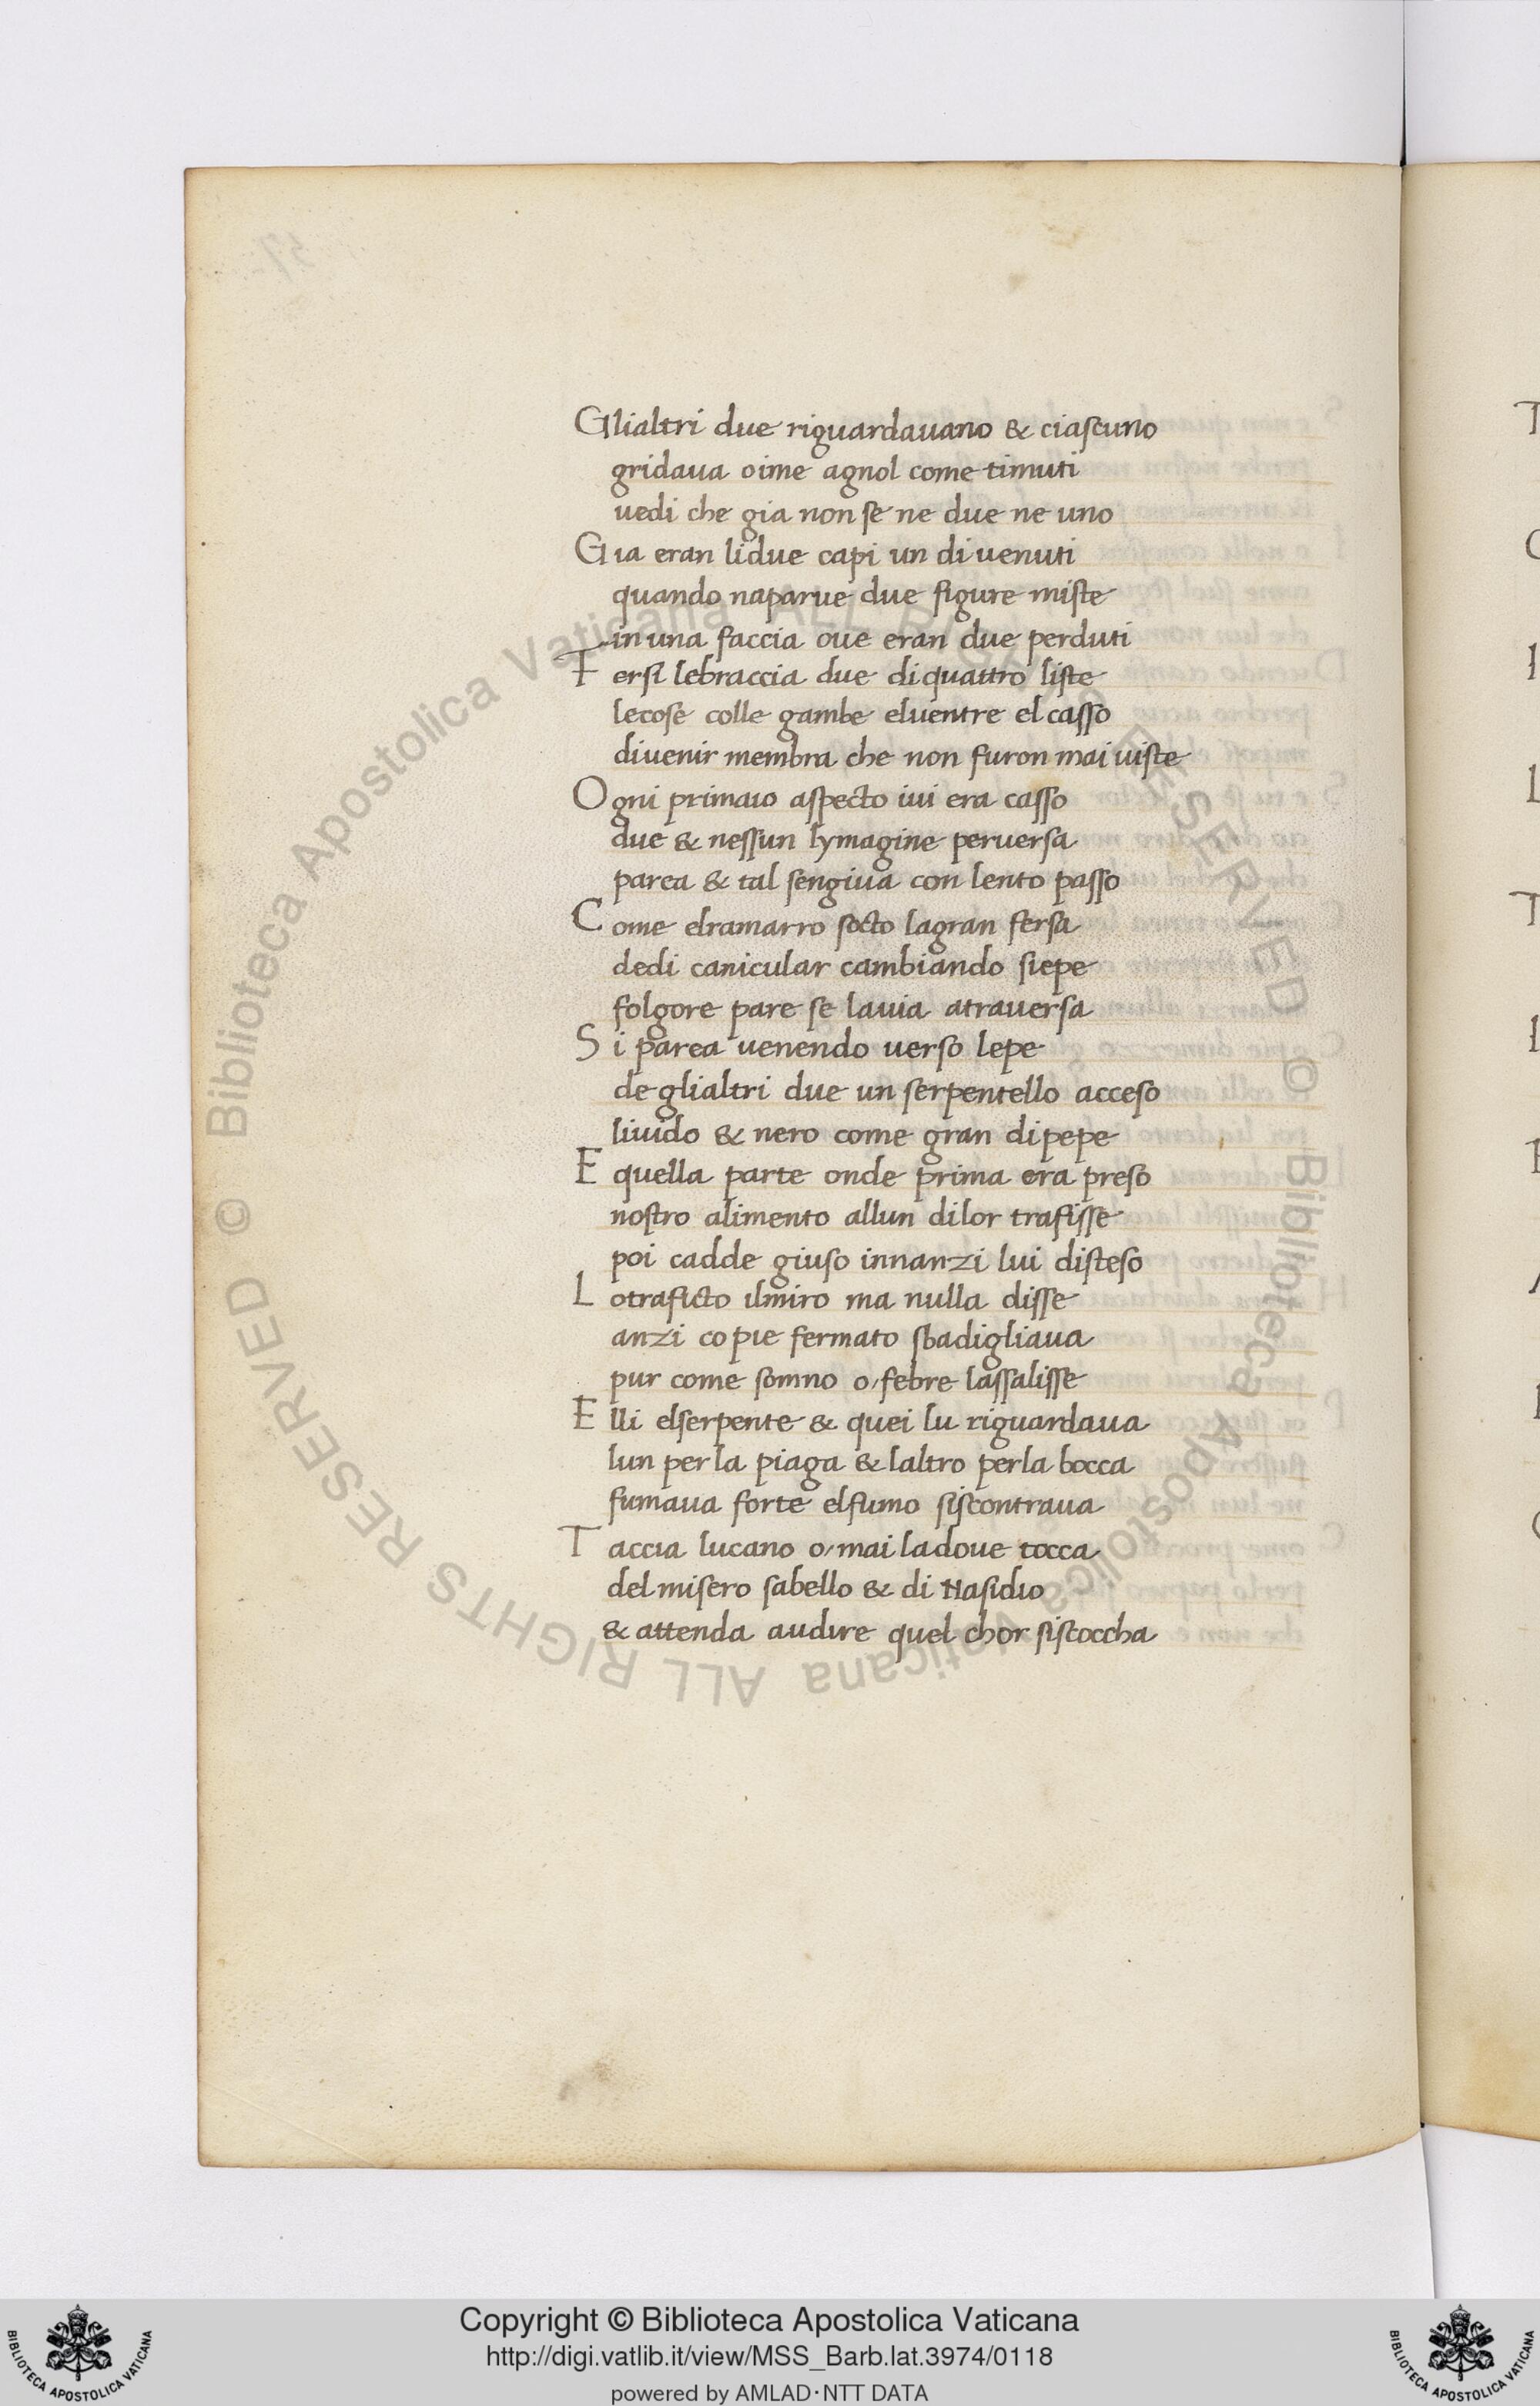 Glialtri due riguardauano & ciascuno
gridaua oime agnol come timuti
uedi che gia non se ne due ne uno
Gia eran lidue capi un diuenuti
quando naparue due figure miste
in una faccia oue eran due perduti
Fersi lebraccia due diquattro liste
lecose colle gambe eluentre el casso
diuenir membra che non furon mai uiste
Ogni primaio aspecto iui era casso
due & nessun lymagine peruersa
parea & tal sengiua con lento passo
Come elramarro socto lagran fersa
dedi canicular cambiando siepe
folgore pare se lauia atrauersa
Si parea uenendo uerso lepe
de glialtri due un serpentello acceso
liuido & nero come gran dipepe
E quella parte onde prima era preso
nostro alimento allun dilor trafisse
poi cadde giuso innanzi lui disteso
Lotraficto ilmiro ma nulla disse
anzi co pie fermato sbadigliaua
pur come somno o/febre lassalisse
Elli elserpente & quei lu riguardaua
lun per la piaga & laltro perla bocca
fumaua forte elfumo siscontraua
Taccia lucano o/mai ladoue tocca
del misero sabello & di Nasidio
& attenda audire quel chor siscoccha
Copyright © Biblioteca Apostolica Vaticana
http://digi.vatlib.it/view/MSS_Barb.lat.3974/0118
powered by AMLAD·NTT DATA
BIBLIOTECA APOSTOLICA VATICANA
BIBLIOTECA APOSTOLICA VATICANA
© Biblioteca Apostolica Vaticana ALL RIGHTS RESERVED
© Biblioteca Apostolica Vaticana ALL RIGHTS RESERVED